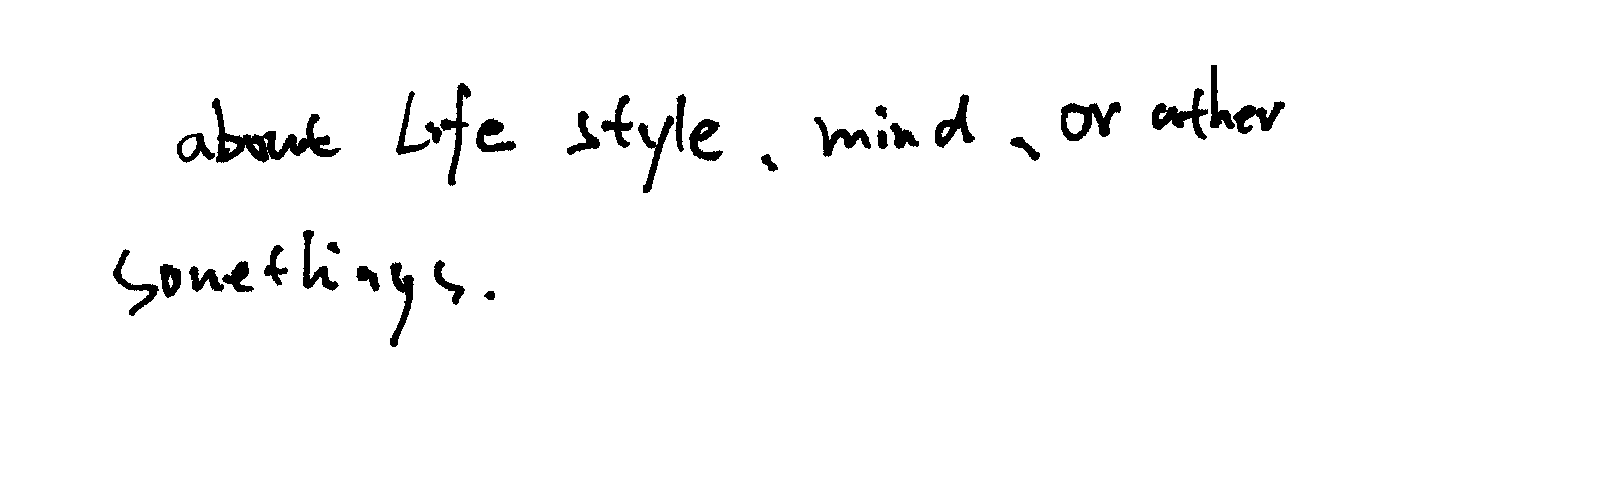 about Life style、mind、or other
somethings.